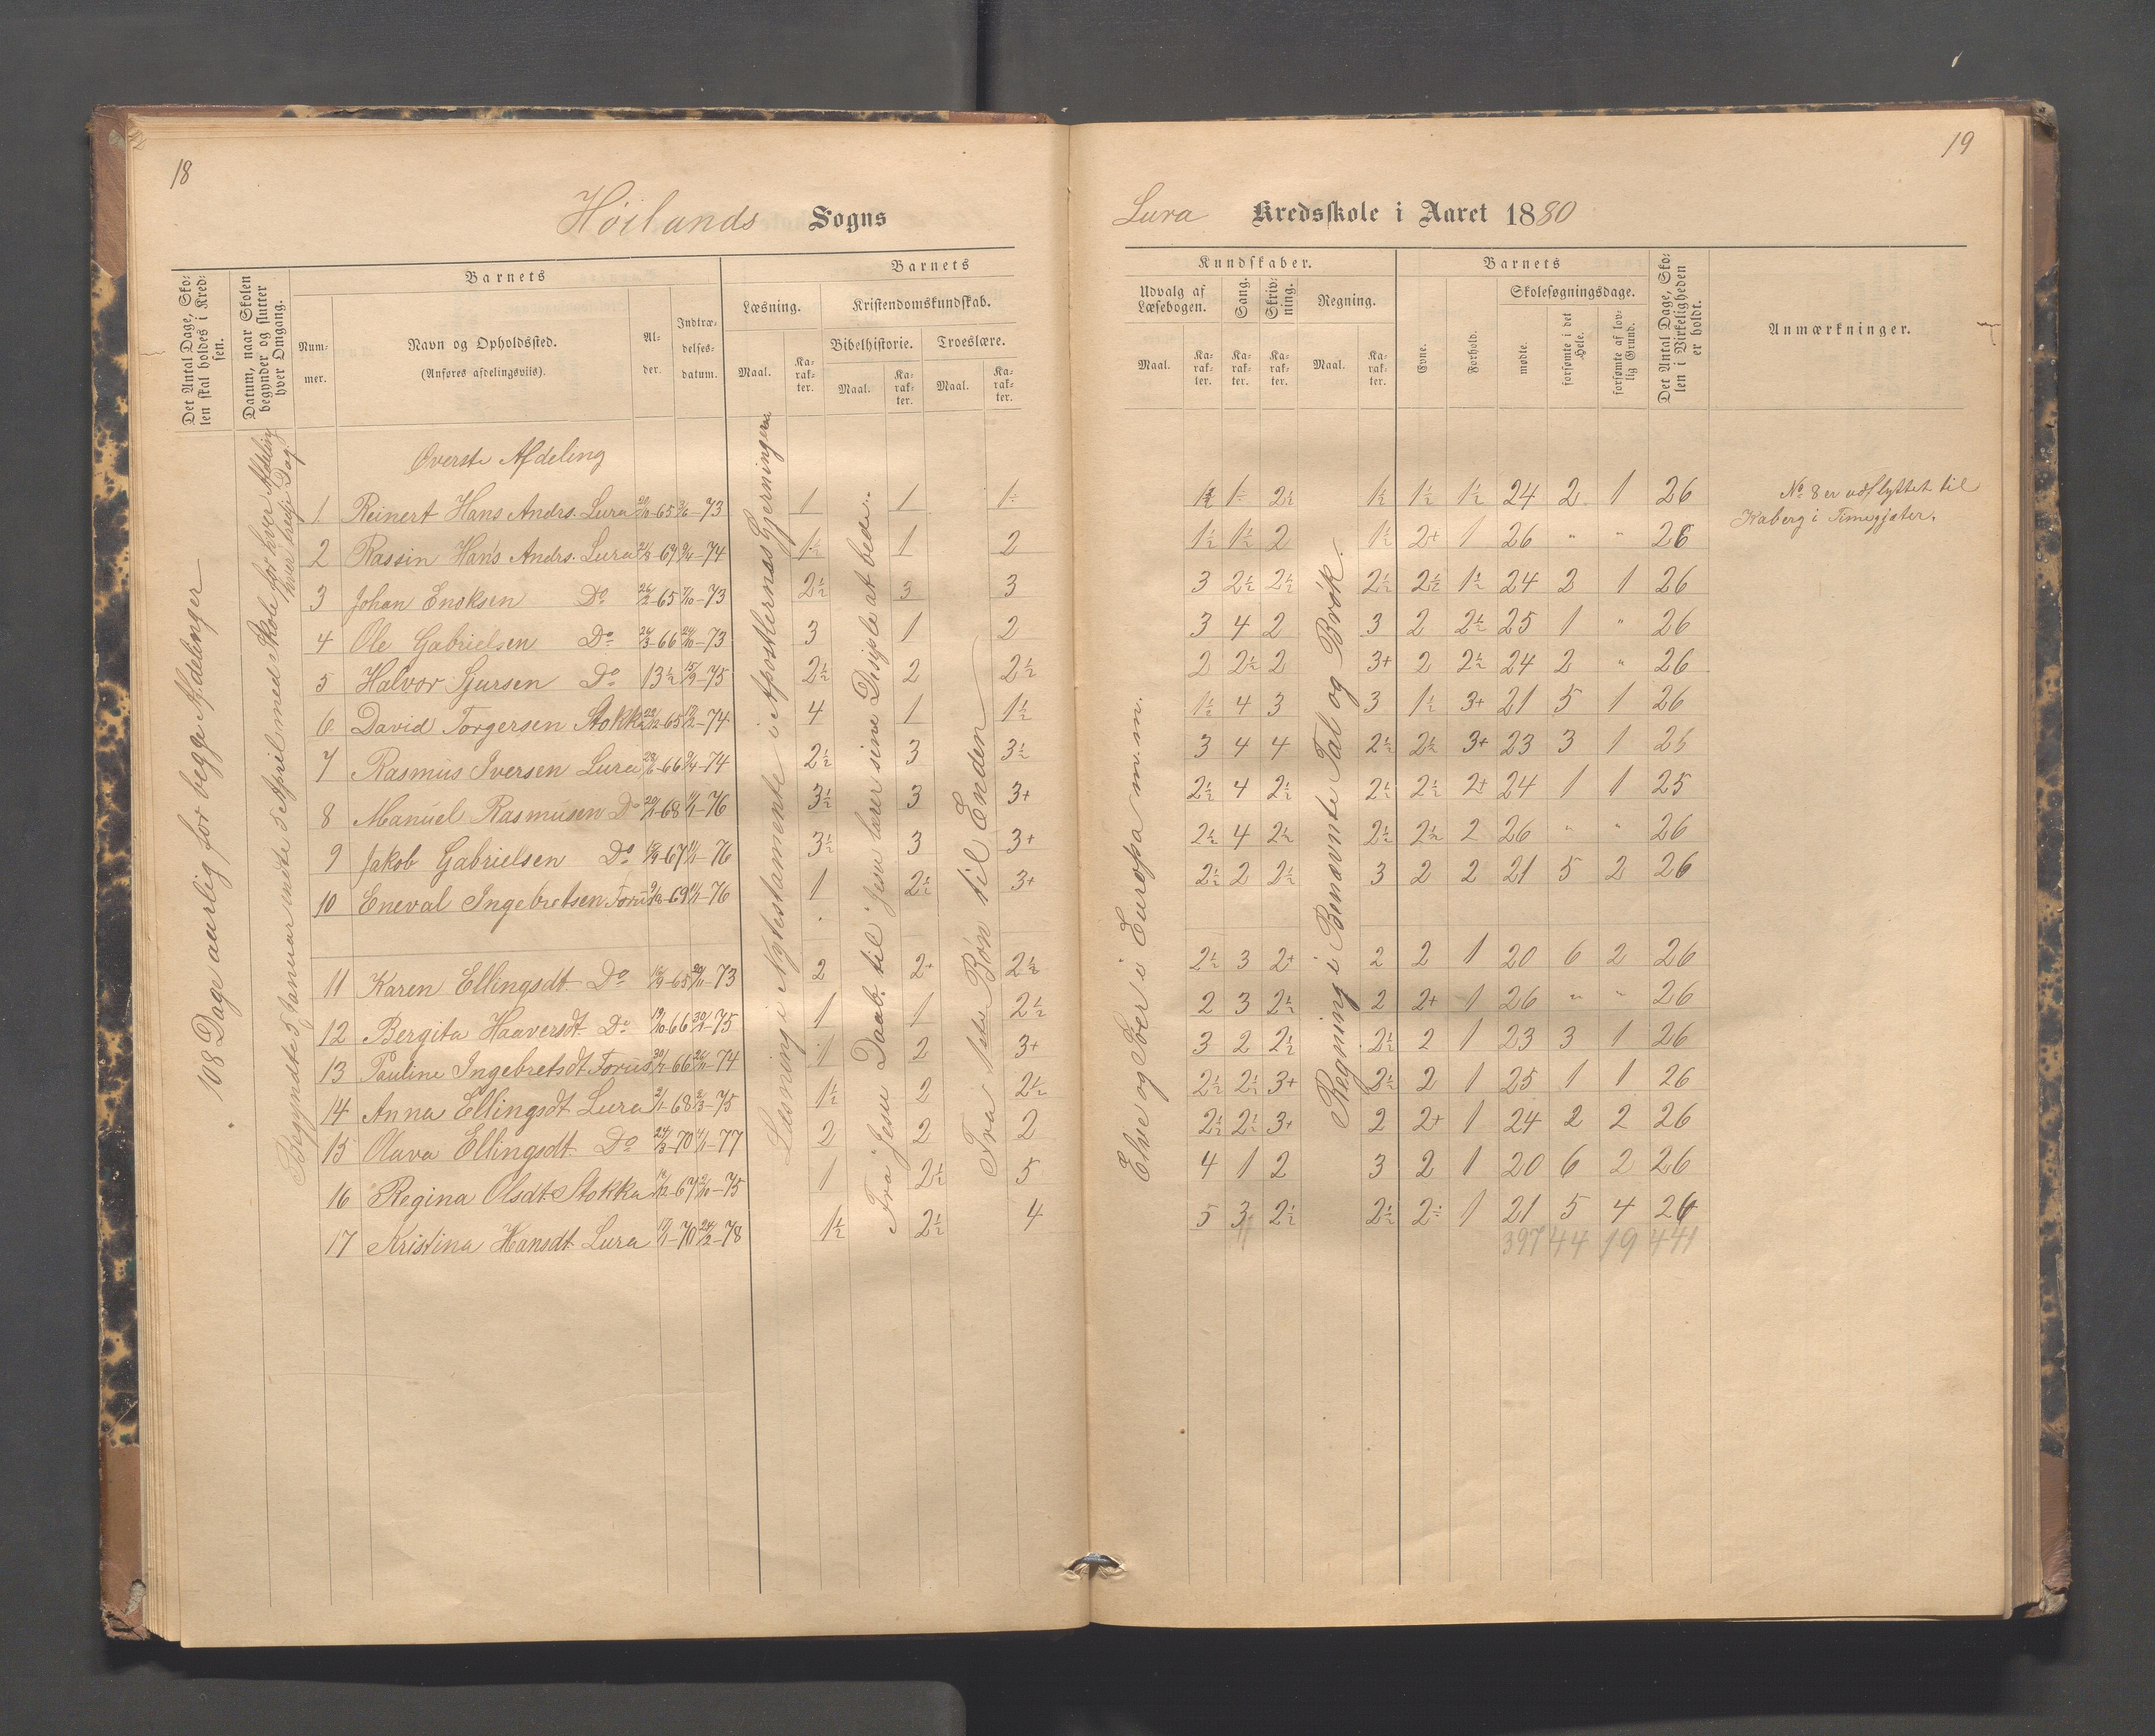 18
Höilands Sogns
Det Antal Dage, Sko-
len skal holdes i Kred-
sen.
Datum, naar Skolen
begynder og slutter
hver Omgang.
Barnets
Num-
mer.
Navn og Opholdssted.
(Anføres afdelingsviis).
Al-
der.
Indtræ-
delses-
datum.
Barnets
Læsning.
Kristendomskundskab.
Bibelhistorie.
Troeslære.
Maal.
Ka-
rak-
ter.
Maal.
Ka-
rak-
ter.
Maal.
Ka-
rak-
ter.
108 Dage aarlig for begge Afdelinger
Begyndte 5 Januar endte 3 April med Skole for hver Afdeling
hver tredje Dag
Læsning i Nytestamente i Apostlernes Gjerninger
Fra Jesu Daab til Jesu lærer sine Disiple at bede.
Fra 4de Bøn til Enden
Øverste Afdeling
1 Reinert Hans Andrs. Lura 65 73 1 1 1÷
2 Rassin Hans Andrs. Lura 74 1½ 1 2
3 Johan Enoksen Do 26/2-65 7/10-73 2½ 3 3
4 Ole Gabrielsen Do 26/3-66 24/10-73 3 1 2
5 Halvor Sjursen Do 13½ 75 2½ 2 2½
6 David Torgersen Stokka 65 74 4 1 1½
7 Rasmus Iversen Lura 66 74 2½ 3 3½
8 Manuel Rasmusen Do 68 76 3½ 3 3+
9 Jakob Gabrielsen Do 67 76 3½ 3 3+
10 Eneval Ingebretsen Forus 69 76 1 2½ 3+
11 Karen Ellingsdt Do 65 73 2 2+ 2½
12 Bergita Haaversdt Do 19/10-66 75 1 1 2½
13 Pauline Ingebretsdt Forus 66 74 1 2 3+
14 Anna Ellingsdt Lura 68 75 1½ 2 2½
15 Olava Ellingsdt Do 24/3-70 77 2 2 2
16 Regina Olsdt Stokka 67 75 1 2½ 5
17 Kristina Hansdt Lura 70 24/2-78 1½ 2½ 4
19
Lura Kredsskole i Aaret 1880
Kundskaber.
Udvalg af
Læsebogen.
Sang.
Skriv-
ning.
Regning.
Maal.
Ka-
rak-
ter.
Ka-
rak-
ter.
Ka-
rak-
ter.
Maal.
Ka-
rak-
ter.
Barnets
Evne.
Forhold.
Skolesøgningsdage.
mødte.
forsømte i det
Hele.
forsømte af lov-
lig Grund.
Det Antal Dage, Sko-
len i Virkeligheden
er holdt.
Anmærkninger.
Elve og Søer i Europa m.m.
Regning i Benævnte Tal og Brøk.
1½ 1÷ 2½ 1½ 1½ 1½ 24 2 1 26
1½ 1½ 2 1½ 2+ 1 26 " " 26
3 2½ 2½ 2½ 2½ 1½ 24 2 1 26
3 4 2 3 2 2½ 25 1 " 26
2 2½ 2 3+ 2 2½ 24 2 " 26
1½ 4 3 3 1½ 3+ 21 5 1 26
3 4 4 2½ 2½ 3+ 23 3 1 26
2½ 4 2½ 2½ 2½ 2+ 24 1 1 25
2½ 4 2½ 2½ 2½ 2 26 " " 26
2½ 2 2½ 3 2 2 21 5 2 26
2½ 3 2+ 2 2 1 20 6 2 26
2 3 2½ 2 2+ 1 26 " " 26
3 2 2½ 2½ 2 1 23 3 1 26
2½ 2½ 3+ 2½ 2 1 25 1 1 26
2½ 2½ 3+ 2 2+ 1 24 2 2 26
4 1 2 3 2 1 20 6 2 26
5 3 2½ 2½ 2÷ 1 21 5 4 26
397 44 19 441
No 8 er udflyttet til
Kaberg i Timegjæter.